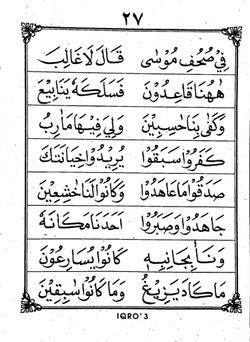 ٢٧
فِيْ صُحُفِ مُوْسٰى قَالَ لَا غَالِبَ
هٰهُنَا قَاعِدُوْنَ فَسَلَكَهٗ يَنَابِيْعَ
وَكَفٰى بِنَا حَاسِبِيْنَ وَلِيَ فِيْهَا مَاٰرِبُ
كَفَرُوْا سَبَقُوْا يُرِيْدُوْا خِيَانَتَكَ
صَدَقُوْا مَا عَاهَدُوْا وَكَانُوْا لَنَا خٰشِعِيْنَ
جَاهَدُوْا وَصَبَرُوْا اَحَدَنَا مَكَانَهٗ
وَنَاٰ بِجَانِبِهٖ كَانُوْا يُسَارِعُوْنَ
مَا كَادَ يَزِيْغُ وَمَا كَانُوْا سٰبِقِيْنَ
IQRO'3